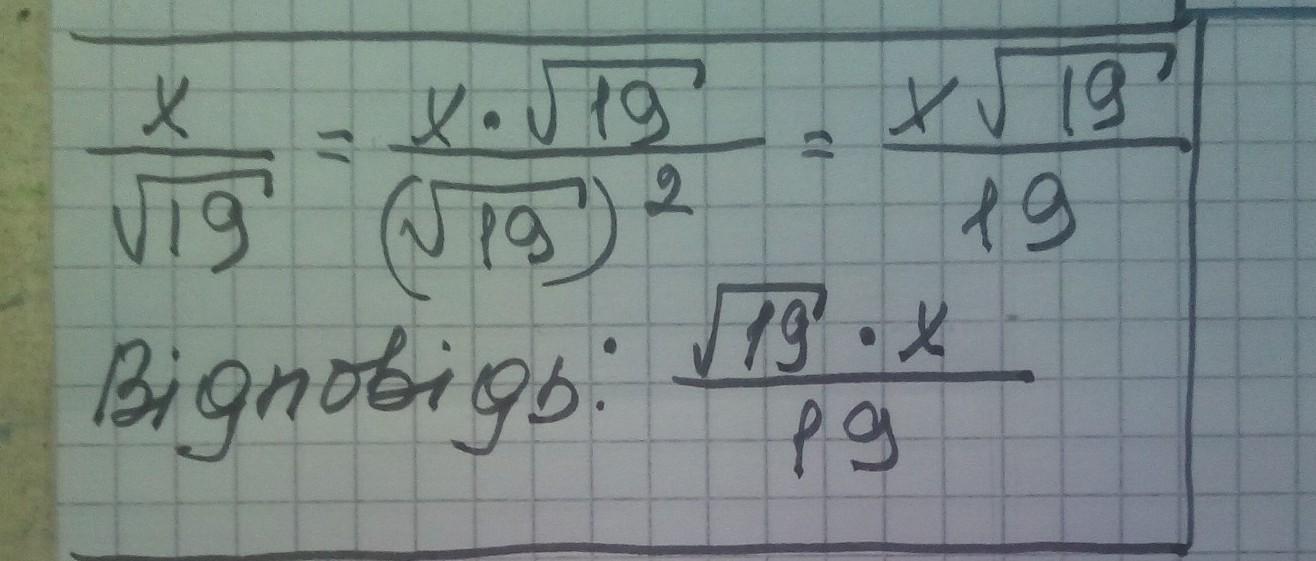 x/√19 = x·√19/(√19)² = x√19/19
Відповідь: √19·x/19